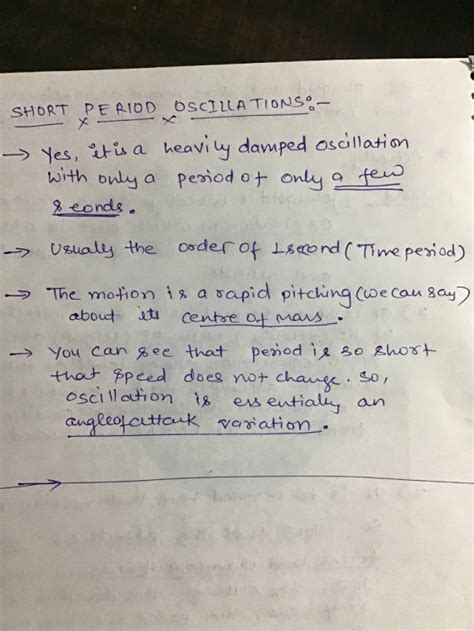 SHORT PERIOD OSCILLATIONS:-
→ Yes, it is a heavily damped oscillation
with only a period of only a few
seonds.
→ Usualy the order of 1second (Time period)
→ The motion is a rapid pitching (we can say)
about its centre of mass.
→ You can see that period is so short
that speed does not change. So,
oscillation is essentially an
angle of attack variation.